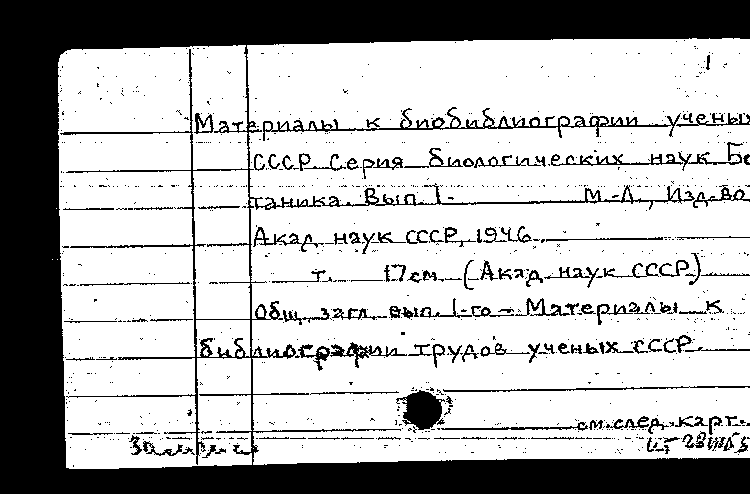 1
Материалы к биобиблиографии ученых
СССР. Серия биологических наук. Бо
таника. Вып. 1- М.-Л., Изд-во
Акад. наук СССР, 1946.
т. 17см. (Акад. наук СССР)
Общ. загл. вып. 1-го - Материалы к
библиографии трудов ученых СССР.
см. след. карт.